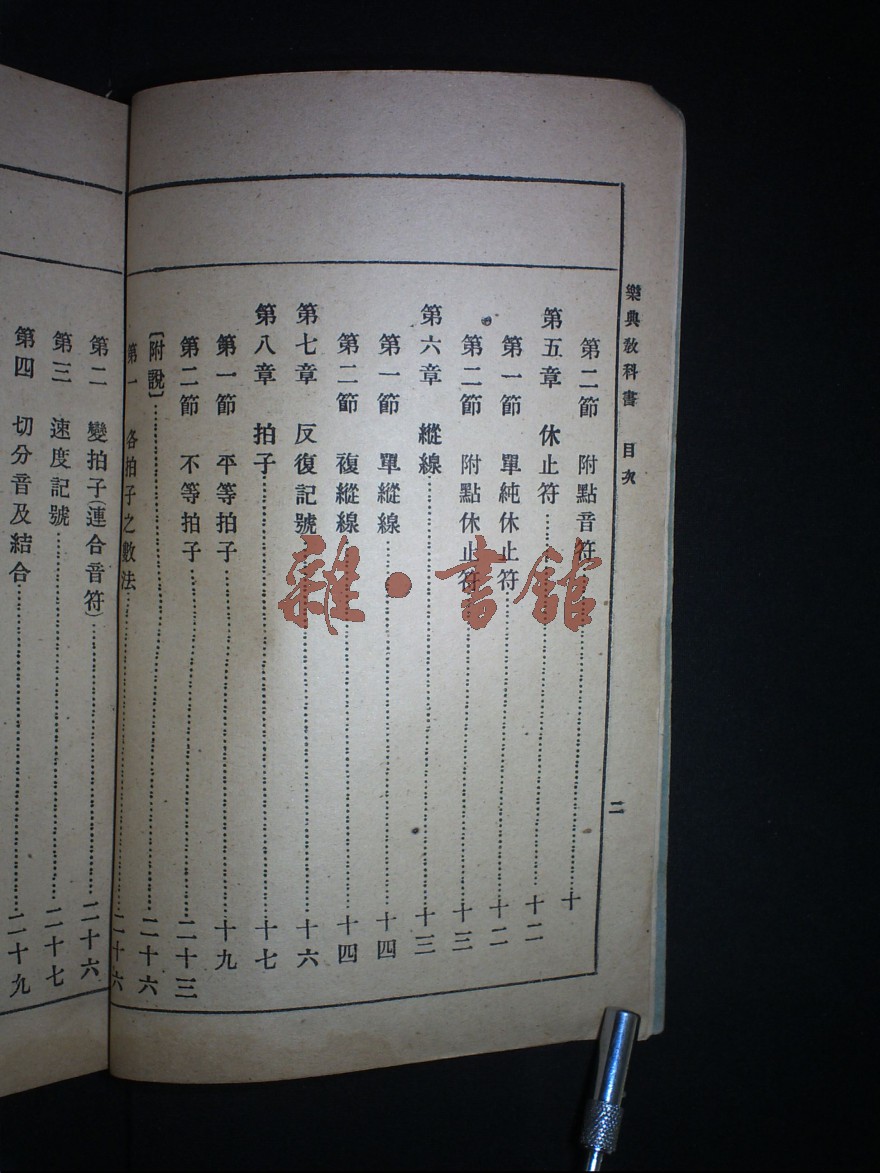 樂典教科書 目次
二
第二節 附點音符……十
第五章 休止符……十二
第一節 單純休止符……十二
第二節 附點休止符……十三
第六章 縱線……十三
第一節 單縱線……十四
第二節 複縱線……十四
第七章 反復記號……十六
第八章 拍子……十七
第一節 平等拍子……十九
第二節 不等拍子……二十三
〔附說〕……二十六
第一 各拍子之數法……二十六
第二 變拍子(連合音符)……二十六
第三 速度記號……二十七
第四 切分音及結合……二十九
雜·書館